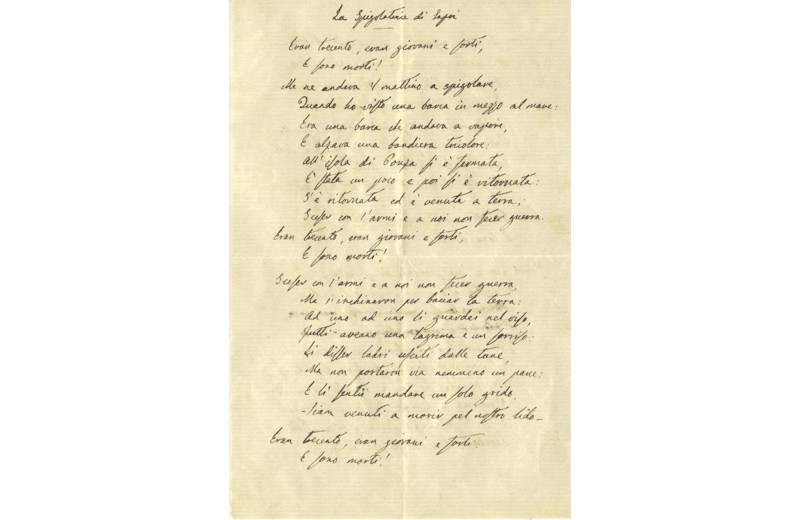 La Spigolatrice di Sapri
Eran trecento, eran giovani e forti,
E sono morti!
Me ne andava il mattino a spigolare,
Quando ho visto una barca in mezzo al mare:
Era una barca che andava a vapore,
E alzava una bandiera tricolore:
All'isola di Ponza si è fermata,
È stata un poco e poi si è ritornata:
S'è ritornata ed è venuta a terra;
Sceser con l'armi e a noi non fecer guerra.
Eran trecento, eran giovani e forti,
E sono morti!
Sceser con l'armi e a noi non fecer guerra,
Ma s'inchinaron per baciar la terra:
Ad uno ad uno li guardai nel viso,
Tutti aveano una lagrima e un sorriso:
Li disser ladri usciti dalle tane,
Ma non portaron via nemmeno un pane:
E li sentii mandare un solo grido,
-Siam venuti a morir pel nostro lido-
Eran trecento, eran giovani e forti
E sono morti!